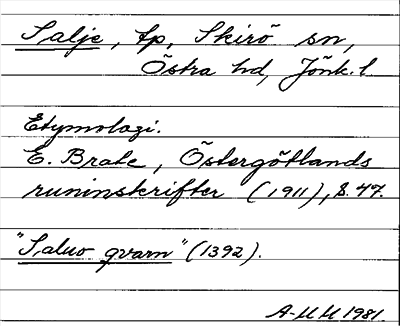 Salje, tp, Skirö sn,
Östra hd, Jönk. l
Etymologi.
E. Brate, Östergötlands
runinskrifter (1911), s. 47.
"Saluo qvarn" (1392).
A-MM 1981